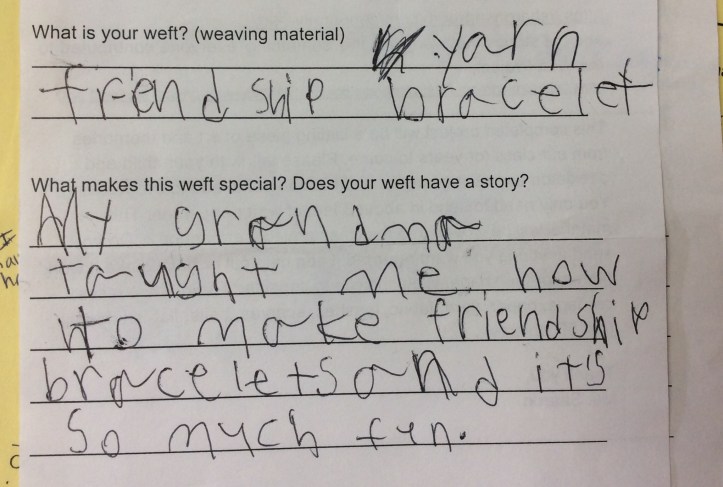 What is your weft? (weaving material)
yarn
friendship bracelet
What makes this weft special? Does your weft have a story?
My grandma
taught me how
to make friendship
bracelets and it's
so much fun.